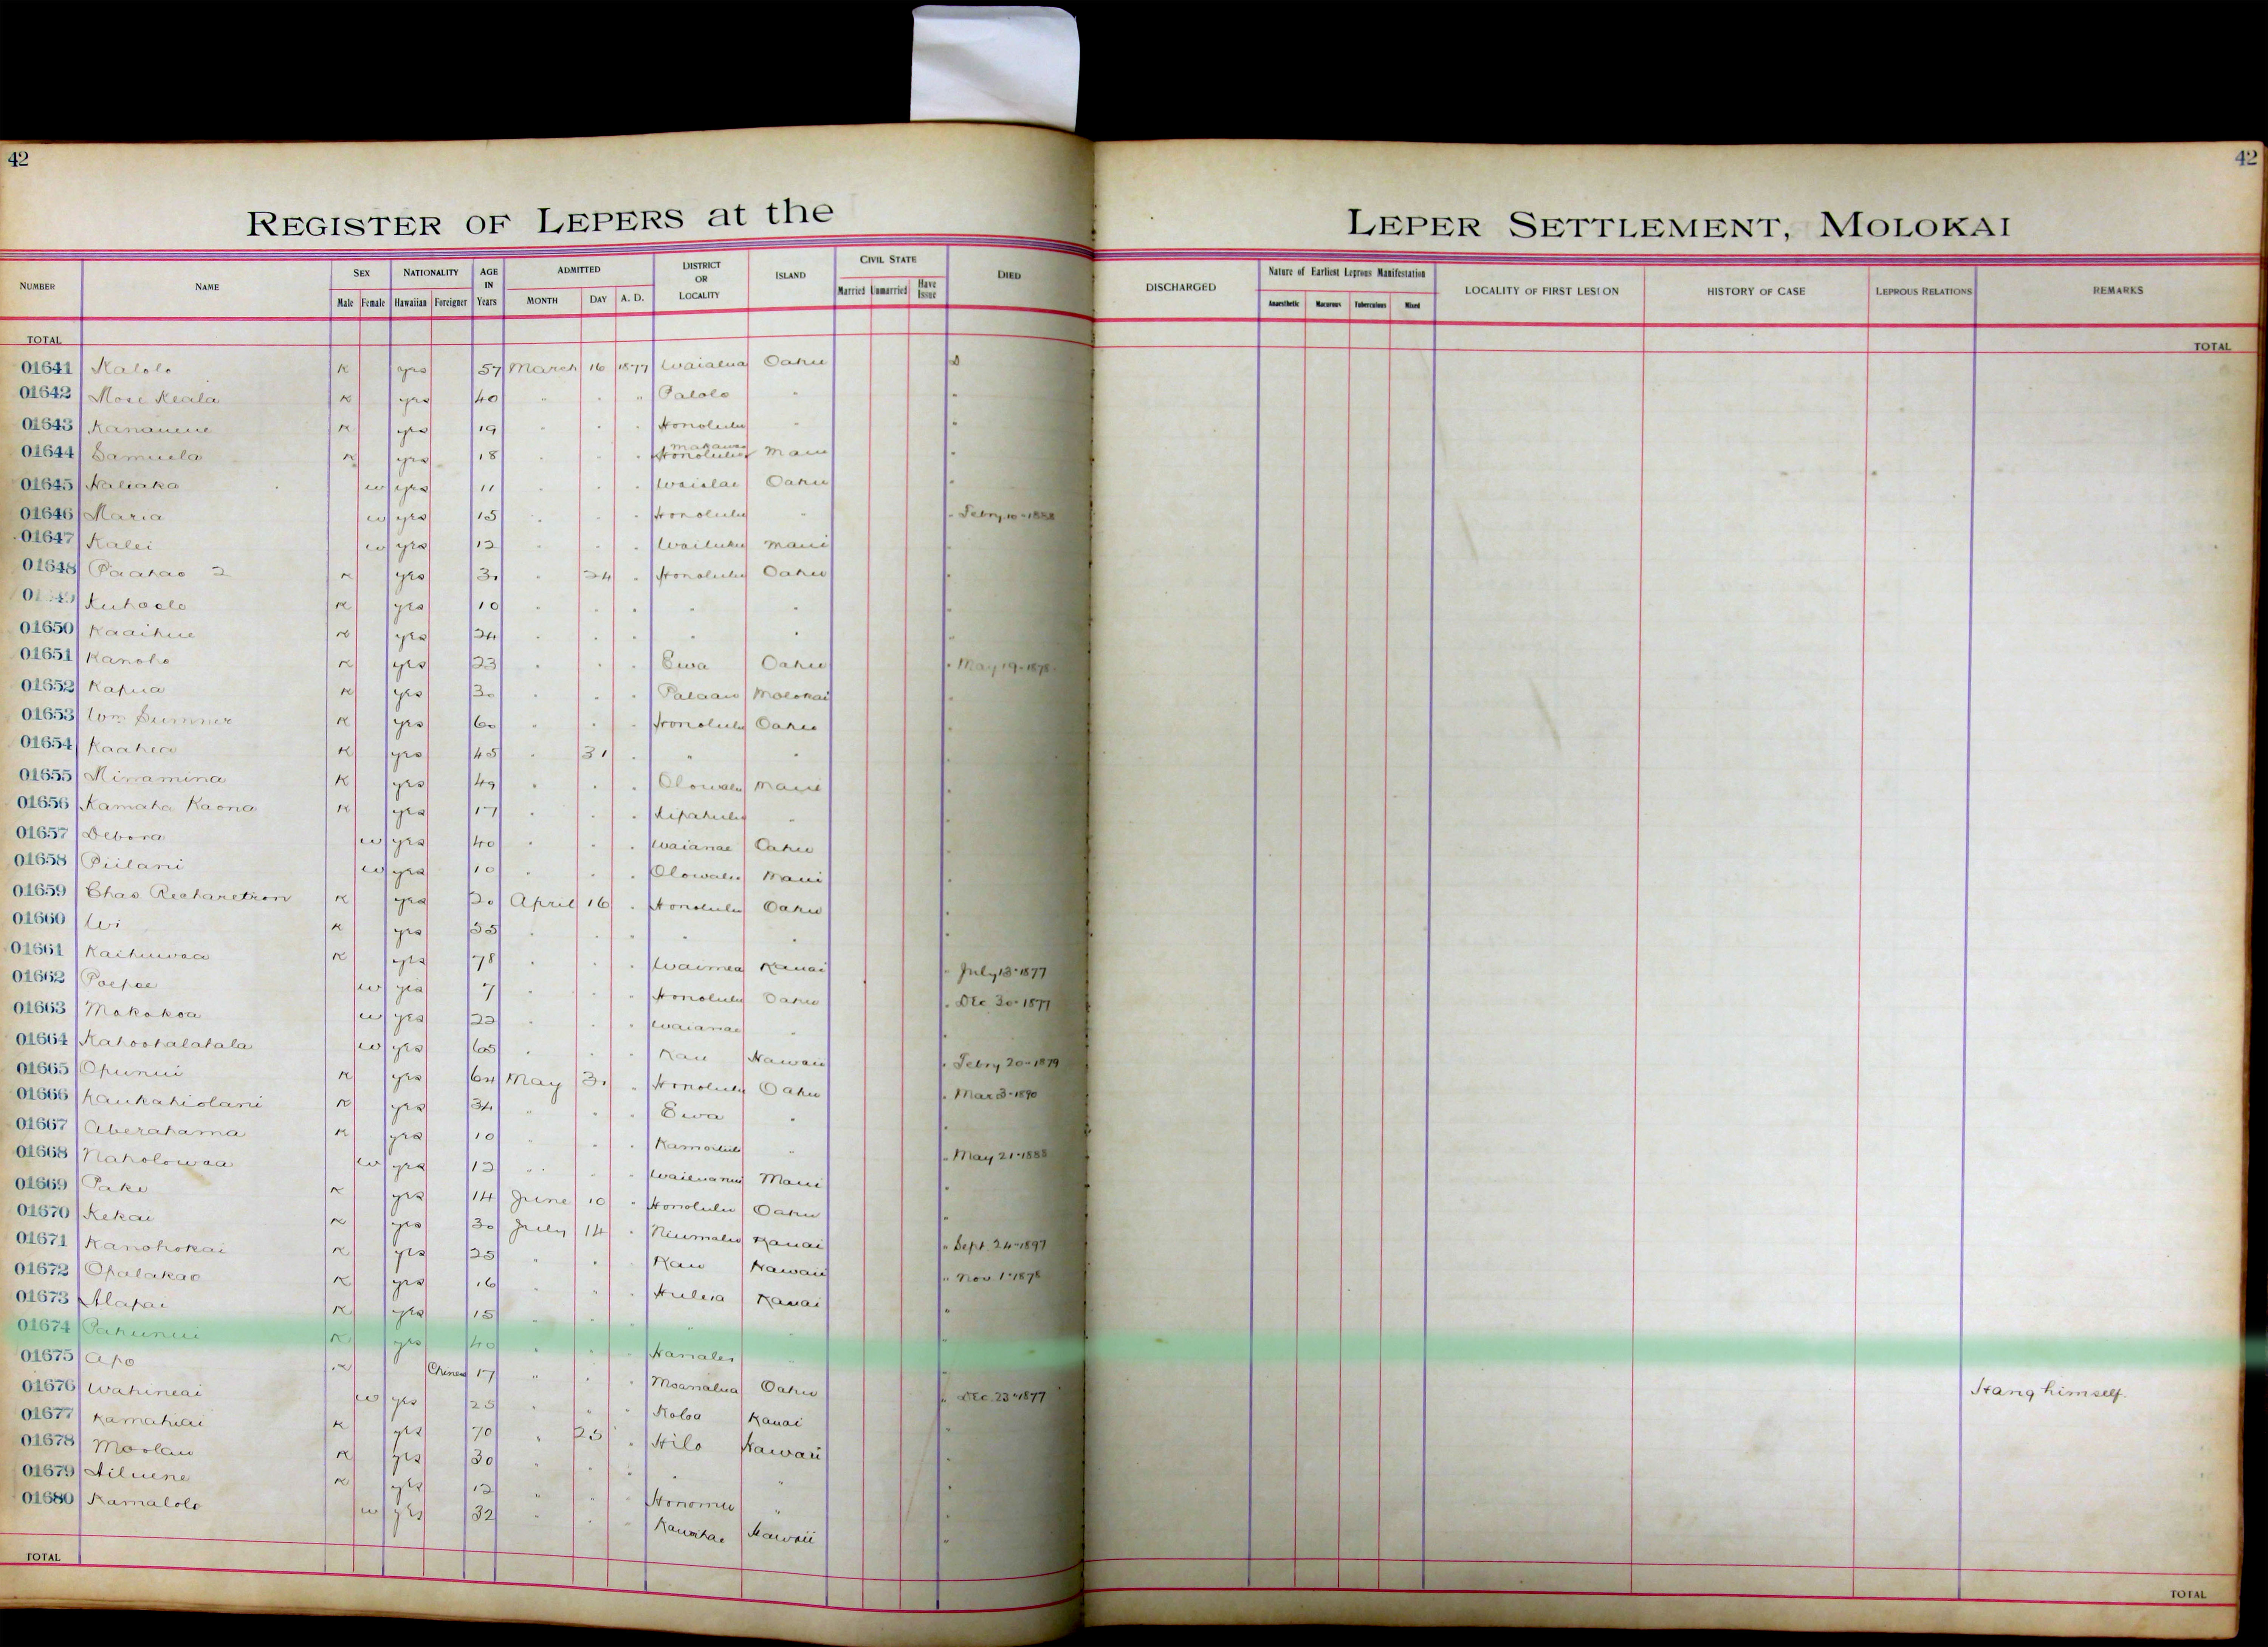 42
42
REGISTER OF LEPERS at the LEPER SETTLEMENT, MOLOKAI
NUMBER NAME SEX Male Female NATIONALITY Hawaiian Foreigner AGE IN Years ADMITTED MONTH DAY A. D. DISTRICT OR LOCALITY ISLAND CIVIL STATE Married Unmarried Have Issue DIED DISCHARGED Nature of Earliest Leprous Manifestation Anaesthetic Macurous Tuberculous Mixed LOCALITY OF FIRST LESION HISTORY OF CASE LEPROUS RELATIONS REMARKS
TOTAL TOTAL
01641 Kalolo K yes 57 March 16 1877 Waialua Oahu D
01642 Mose Keala K yes 40 " " " Palolo " "
01643 Kananeue K yes 19 " " " Honolulu " "
01644 Samuela K yes 18 " " " Honolulu Makawao Maui "
01645 Naliaka w yes 11 " " " Waialae Oahu "
01646 Maria w yes 15 " " " Honolulu " " Febry 10-1888
01647 Kalei w yes 12 " " " Wailuku Maui "
01648 Paahao 2 K yes 30 " 24 " Honolulu Oahu "
Kuhaelo K yes 10 " " " " " "
01650 Kaaihue K yes 24 " " " " " "
01651 Kanoho K yes 23 " " " Ewa Oahu " May 19-1878
01652 Kapua K yes 30 " " " Palaau Molokai "
01653 Wm Sumner K yes 60 " " " Honolulu Oahu "
01654 Kaahea K yes 45 " 31 " " " "
01655 Minamina K yes 49 " " " Olowalu Maui "
01656 Kamaha Kaona K yes 17 " " " Kipahulu " "
01657 Debora w yes 40 " " " Waianae Oahu "
01658 Piilani w yes 10 " " " Olowalu Maui "
01659 Chas Richaretson K yes 20 April 16 " Honolulu Oahu "
01660 Wi K yes 55 " " " " " "
01661 Kaihuwaa K yes 78 " " " Waimea Kauai " July 13-1877
01662 Poepoe w yes 7 " " " Honolulu Oahu " Dec 30-1877
01663 Makakoa w yes 22 " " " Waianae " "
01664 Kahoohalahala w yes 65 " " " Kau Hawaii " Febry 20-1879
01665 Opunui K yes 64 May 31 " Honolulu Oahu " Mar 3-1890
01666 Kaukahiolani K yes 34 " " " Ewa " "
01667 Aberahama K yes 10 " " " Kamoiliili " " May 21-1888
01668 Naholowaa w yes 12 " " " Wailuanui Maui "
01669 Pake K yes 14 June 10 " Honolulu Oahu "
01670 Kekai K yes 30 July 14 " Niumalu Kauai " Sept 24-1897
01671 Kanohokai K yes 25 " " " Kau Hawaii " Nov 1-1878
01672 Opalakao K yes 16 " " " Huleia Kauai "
01673 Alapai K yes 15 " " " " " "
01674 Pahunui K yes 40 " " " Hanalei " "
01675 Apo K Chinese 17 " " " Moanalua Oahu " Dec. 23-1877 Hang himself.
01676 Wahineai w yes 25 " " " Koloa Kauai "
01677 Kamahiai K yes 70 " 25 " Hilo Hawaii "
01678 Moolau K yes 30 " " " " " "
01679 Hiluene K yes 12 " " " Honomu " "
01680 Kamalolo w yes 32 " " " Kawaihae Hawaii "
TOTAL TOTAL